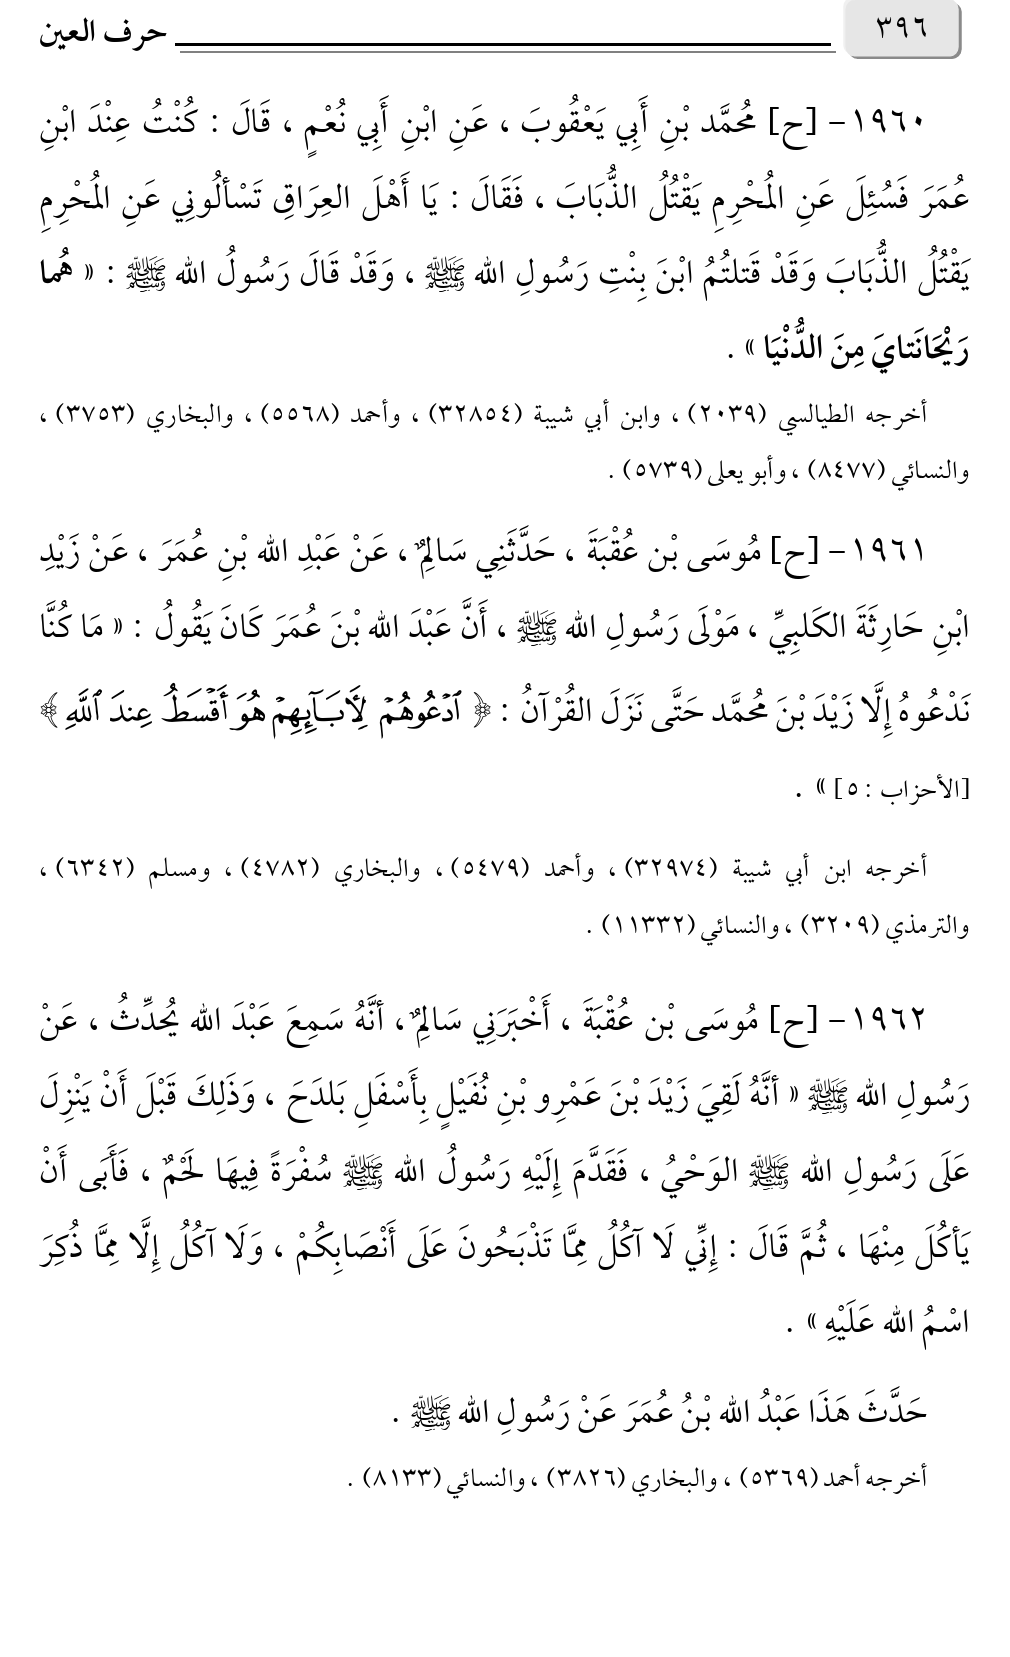 ٣٩٦
حرف العين
١٩٦٠- [ح] مُحمَّد بْنِ أَبِي يَعْقُوبَ ، عَنِ ابْنِ أَبِي نُعْمٍ ، قَالَ : كُنْتُ عِنْدَ ابْنِ
عُمَرَ فَسُئِلَ عَنِ المُحْرِمِ يَقْتُلُ الذُّبَابَ ، فَقَالَ : يَا أَهْلَ العِرَاقِ تَسْألُونِي عَنِ المُحْرِمِ
يَقْتُلُ الذُّبَابَ وَقَدْ قَتلتُمُ ابْنَ بِنْتِ رَسُولِ الله ﷺ ، وَقَدْ قَالَ رَسُولُ الله ﷺ : « هُما
رَيْحَانَتايَ مِنَ الدُّنْيَا » .
أخرجه الطيالسي (٢٠٣٩) ، وابن أبي شيبة (٣٢٨٥٤) ، وأحمد (٥٥٦٨) ، والبخاري (٣٧٥٣) ،
والنسائي (٨٤٧٧) ، وأبو يعلى (٥٧٣٩) .
١٩٦١- [ح] مُوسَى بْن عُقْبَةَ ، حَدَّثَنِي سَالِمٌ ، عَنْ عَبْدِ الله بْنِ عُمَرَ ، عَنْ زَيْدِ
ابْنِ حَارِثَةَ الكَلبِيِّ ، مَوْلَى رَسُولِ الله ﷺ ، أَنَّ عَبْدَ الله بْنَ عُمَرَ كَانَ يَقُولُ : « مَا كُنَّا
نَدْعُوهُ إِلَّا زَيْدَ بْنَ مُحمَّد حَتَّى نَزَلَ القُرْآنُ : ﴿ ٱدْعُوهُمْ لِأَبَآئِهِمْ هُوَ أَقْسَطُ عِندَ ٱللَّهِ ﴾
[الأحزاب : ٥] » .
أخرجه ابن أبي شيبة (٣٢٩٧٤) ، وأحمد (٥٤٧٩) ، والبخاري (٤٧٨٢) ، ومسلم (٦٣٤٢) ،
والترمذي (٣٢٠٩) ، والنسائي (١١٣٣٢) .
١٩٦٢- [ح] مُوسَى بْن عُقْبَةَ ، أَخْبَرَنِي سَالِمٌ ، أنَّهُ سَمِعَ عَبْدَ الله يُحدِّثُ ، عَنْ
رَسُولِ الله ﷺ « أنَّهُ لَقِيَ زَيْدَ بْنَ عَمْرِو بْنِ نُفَيْلٍ بِأَسْفَلِ بَلدَحَ ، وَذَلِكَ قَبْلَ أَنْ يَنْزِلَ
عَلَى رَسُولِ الله ﷺ الوَحْيُ ، فَقَدَّمَ إِلَيْهِ رَسُولُ الله ﷺ سُفْرَةً فِيهَا لَحْمٌ ، فَأَبَى أَنْ
يَأكُلَ مِنْهَا ، ثُمَّ قَالَ : إِنِّي لَا آكُلُ مِمَّا تَذْبَحُونَ عَلَى أَنْصَابِكُمْ ، وَلَا آكُلُ إِلَّا مِمَّا ذُكِرَ
اسْمُ الله عَلَيْهِ » .
حَدَّثَ هَذَا عَبْدُ الله بْنُ عُمَرَ عَنْ رَسُولِ الله ﷺ .
أخرجه أحمد (٥٣٦٩) ، والبخاري (٣٨٢٦) ، والنسائي (٨١٣٣) .